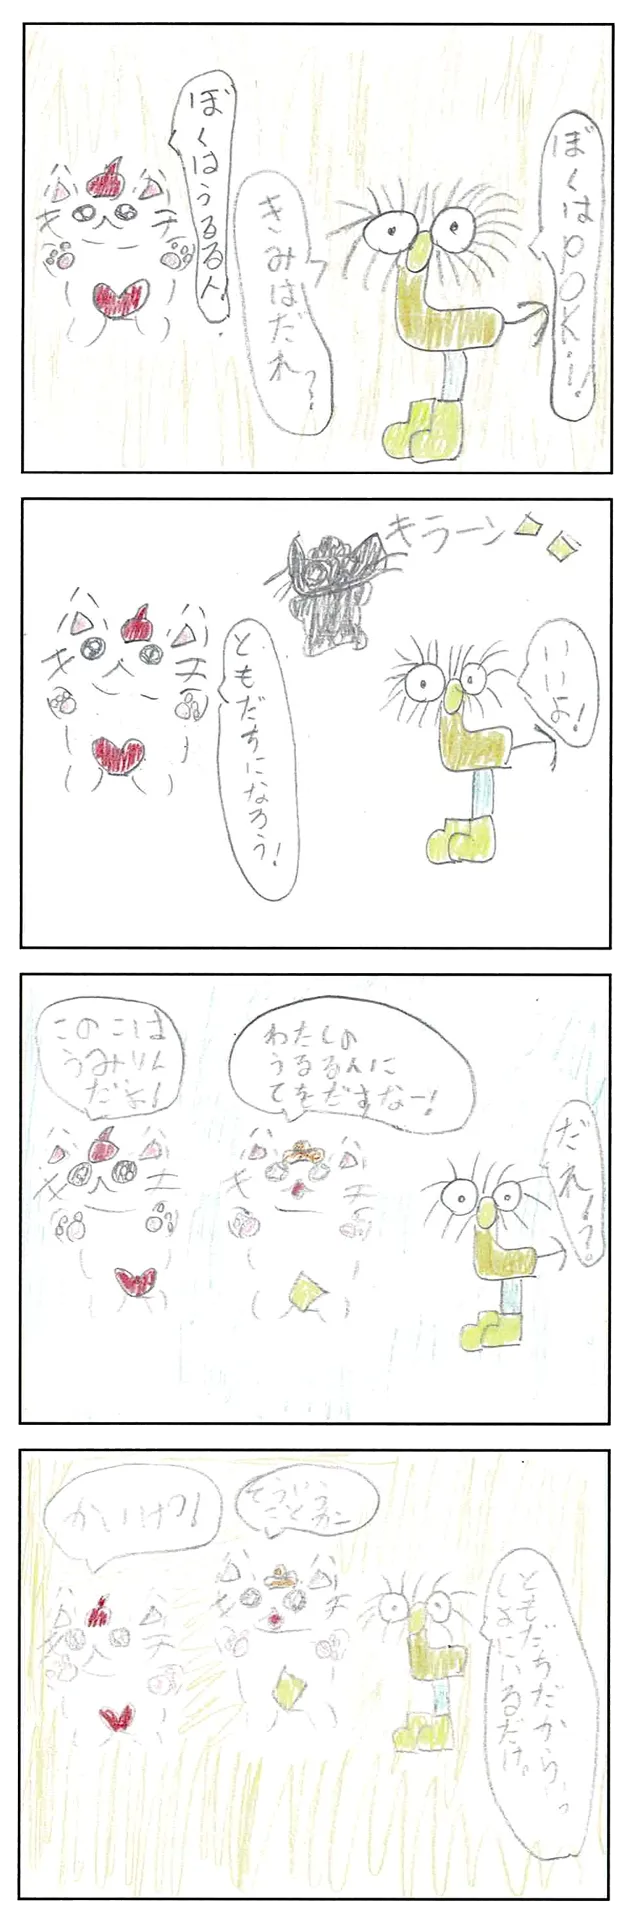 ぼくはうるる人!
きみはだれ?
ぼくはPOK!!
キラーン
ともだちになろう!
いいよ!
このこは
うみりん
だよ!
わたしの
うるる人に
てをだすなー!
だれ!?
かいけつ!
そういう
ことかー
ともだちだから、いっ
しょにいるだけ。